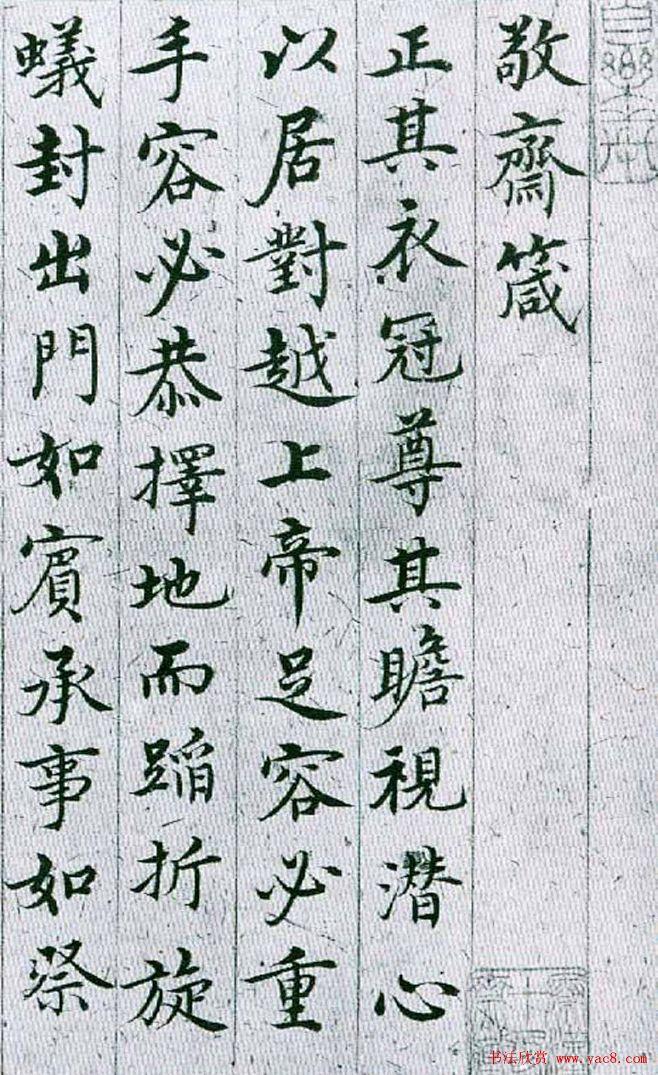 敬齋箴
正其衣冠尊其瞻視潛心
以居對越上帝足容必重
手容必恭擇地而蹈折旋
蟻封出門如賓承事如祭
书法欣赏 www.yac8.com